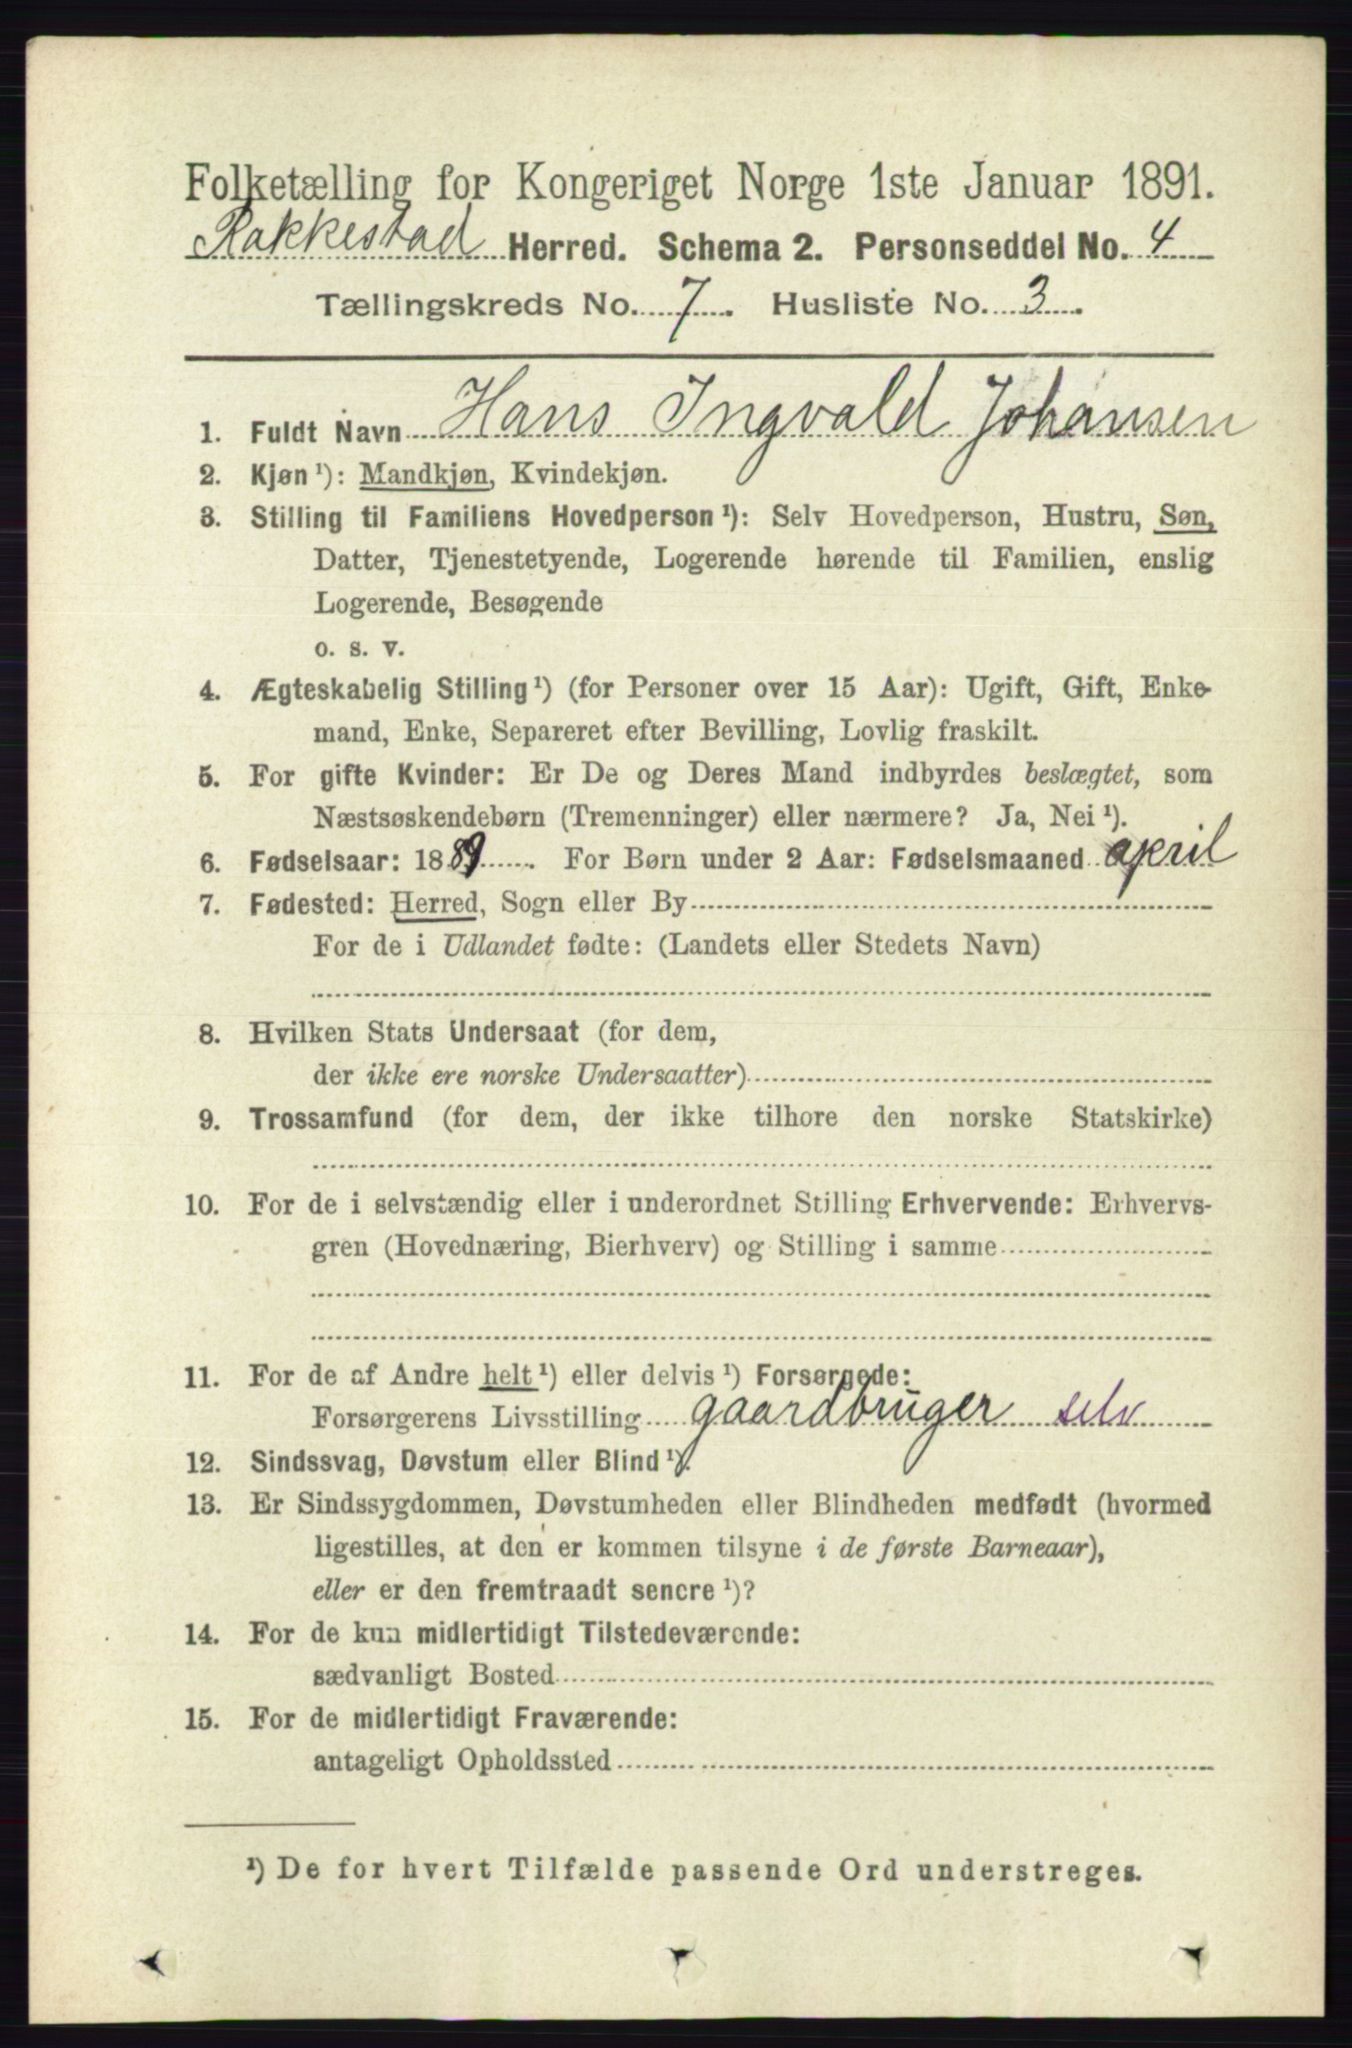 Folketælling for Kongeriget Norge 1ste Januar 1891.
Rakkestad Herred. Schema 2. Personseddel No. 4
Tællingskreds No. 7. Husliste No. 3.
1. Fuldt Navn Hans Ingvald Johansen
2. Kjøn¹): Mandkjøn, Kvindekjøn.
3. Stilling til Familiens Hovedperson¹): Selv Hovedperson, Hustru, Søn,
Datter, Tjenestetyende, Logerende hørende til Familien, enslig
Logerende, Besøgende
o. s. v.
4. Ægteskabelig Stilling¹) (for Personer over 15 Aar): Ugift, Gift, Enke-
mand, Enke, Separeret efter Bevilling, Lovlig fraskilt.
5. For gifte Kvinder: Er De og Deres Mand indbyrdes beslægtet, som
Næstsøskendebørn (Tremenninger) eller nærmere? Ja, Nei¹).
6. Fødselsaar: 1889. For Børn under 2 Aar: Fødselsmaaned april
7. Fødested: Herred, Sogn eller By
For de i Udlandet fødte: (Landets eller Stedets Navn)
8. Hvilken Stats Undersaat (for dem,
der ikke ere norske Undersaatter)
9. Trossamfund (for dem, der ikke tilhore den norske Statskirke)
10. For de i selvstændig eller i underordnet Stilling Erhvervende: Erhvervs-
gren (Hovednæring, Bierhverv) og Stilling i samme
11. For de af Andre helt¹) eller delvis¹) Forsørgede:
Forsørgerens Livsstilling gaardbruger selv
12. Sindssvag, Døvstum eller Blind¹).
13. Er Sindssygdommen, Døvstumheden eller Blindheden medfødt (hvormed
ligestilles, at den er kommen tilsyne i de første Barneaar),
eller er den fremtraadt senere¹)?
14. For de kun midlertidigt Tilstedeværende:
sædvanligt Bosted
15. For de midlertidigt Fraværende:
antageligt Opholdssted
¹) De for hvert Tilfælde passende Ord understreges.